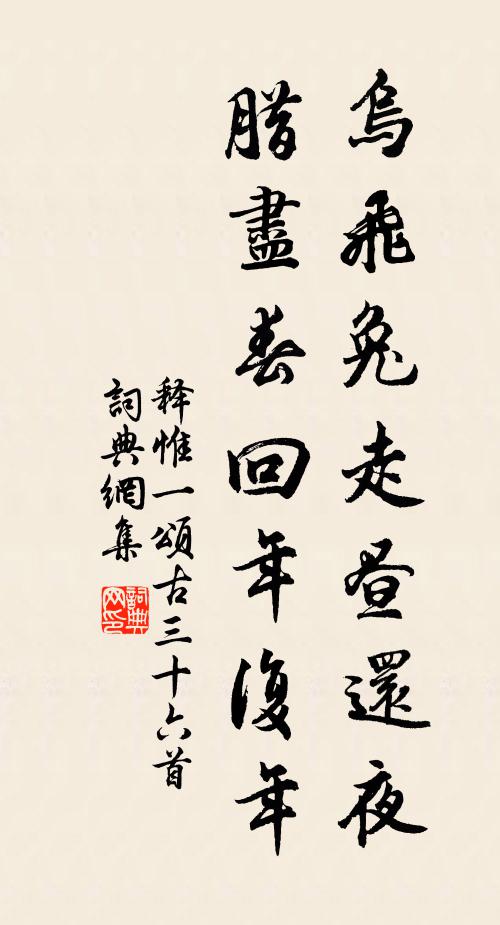 烏飛兔走晝還夜
腊盡春回年復年
释惟一頌古三十六首
詞典網集
詞典网印